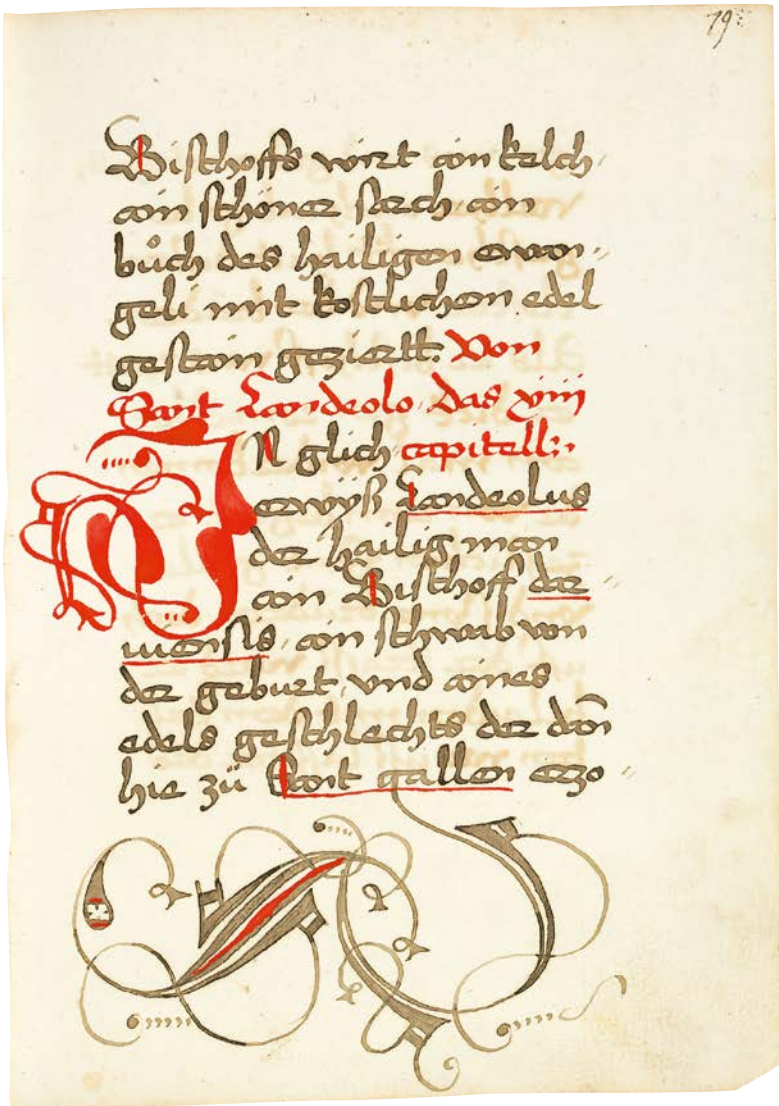 79
Bischoffs wirt ain kelch
ain schöner sarch ain
bůch des hailigen ewan-
geli mit kostlichem edel
gestain geziertt. Von
Sant Landeolo das xiii
IN glich capitell:
erwyß Landeolus
der hailig man
ain Bischoff dar
uiensis ain schwab von
der geburt vnd aines
edels geschlechts der dan̄
hie zü Sant gallen erzo